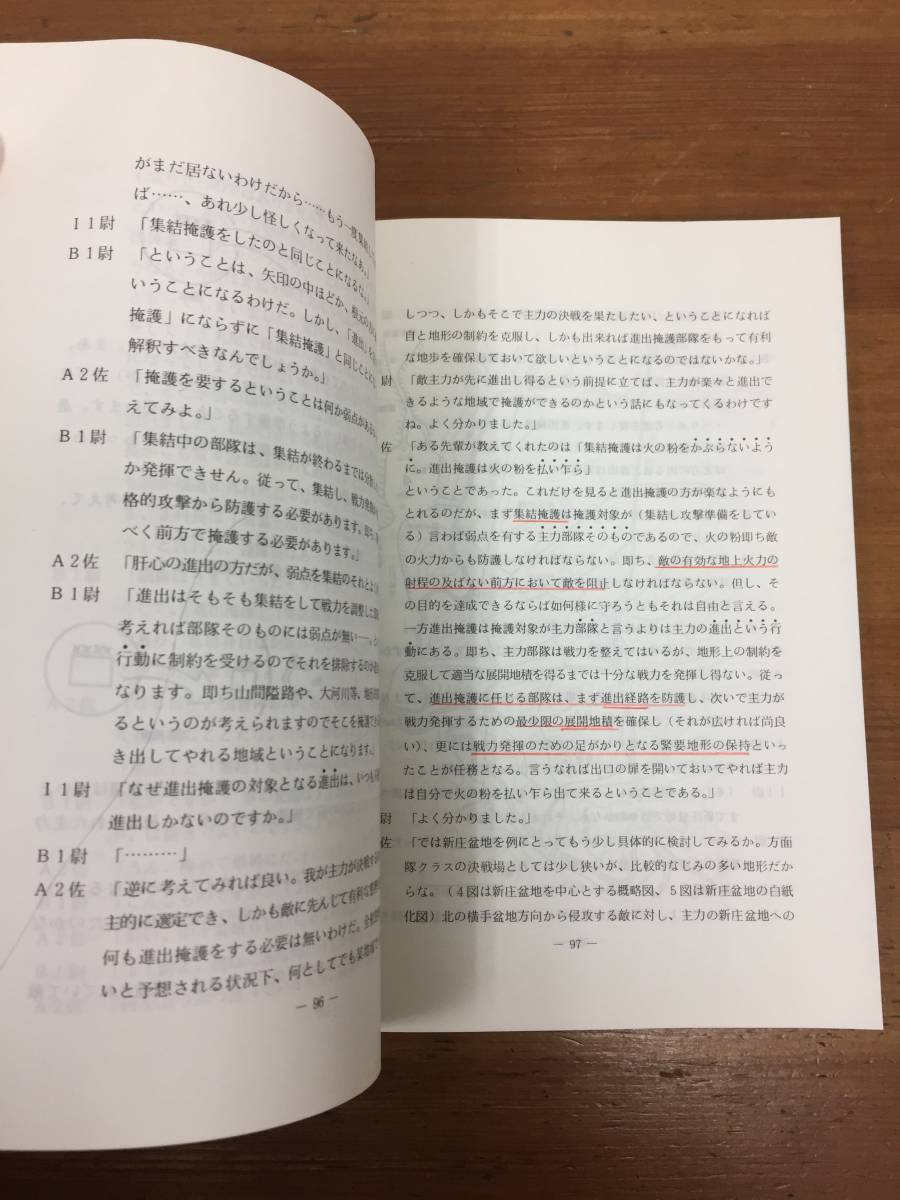 がまだ居ないわけだから……もう一度集結し
ば……、あれ少し怪しくなって来たなあ。」
I1尉 「集結掩護をしたのと同じことになるな。」
B1尉 「ということは、矢印の中ほどか、根元の
いうことになるわけだ。しかし、「進出」を
掩護」にならずに「集結掩護」と同じことに
解釈すべきなんでしょうか。」
A2佐 「掩護を要するということは何か弱点が
えてみよ。」
B1尉 「集結中の部隊は、集結が終わるまでは
か発揮できせん。従って、集結し、戦力発揮
格的攻撃から防護する必要があります。即ち、
べく前方で掩護する必要があります。」
A2佐 「肝心の進出の方だが、弱点を集結のそれと
B1尉 「進出はそもそも集結をして戦力を調整した
考えれば部隊そのものには弱点が無い―。
行動に制約を受けるのでそれを排除するのが
なります。即ち山間隘路や、大河川等、
るというのが考えられますのでそこを掩護
き出してやれる地域ということになります。
I1尉 「なぜ進出掩護の対象となる進出は、いつも
進出しかないのですか。」
B1尉 「………」
A2佐 「逆に考えてみれば良い。我が主力が決戦
主的に選定でき、しかも敵に先んじて有利な
何も進出掩護をする必要は無いわけだ。
いと予想される状況下、何としてでも某地域
― 96 ―
しつつ、しかもそこで主力の決戦を果たしたい、ということになれば
自と地形の制約を克服し、しかも出来れば進出掩護部隊をもって有利
な地歩を確保しておいて欲しいということになるのではないかな。」
尉 「敵主力が先に進出し得るという前提に立てば、主力が楽々と進出で
きるような地域で掩護ができるのかという話にもなってくるわけです
ね。よく分かりました。」
佐 「ある先輩が教えてくれたのは「集結掩護は火の粉をかぶらないよう
に。進出掩護は火の粉を払い乍ら」
ということであった。これだけを見ると進出掩護の方が楽なようにも
とれるのだが、まず集結掩護は掩護対象が（集結し攻撃準備をしてい
る）言わば弱点を有する主力部隊そのものであるので、火の粉即ち敵
の火力からも防護しなければならない。即ち、敵の有効な地上火力の
射程の及ばない前方において敵を阻止しなければならない。但し、そ
の目的を達成できるならば如何様に守ろうともそれは自由と言える。
一方進出掩護は掩護対象が主力部隊と言うよりは主力の進出という行
動にある。即ち、主力部隊は戦力を整えてはいるが、地形上の制約を
克服して適当な展開地積を得るまでは十分な戦力を発揮し得ない。従っ
て、進出掩護に任じる部隊は、まず進出経路を防護し、次いで主力が
戦力発揮するための最少限の展開地積を確保し（それが広ければ尚良
い）、更には戦力発揮のための足がかりとなる緊要地形の保持といっ
たことが任務となる。言うなれば出口の扉を開いておいてやれば主力
は自分で火の粉を払い乍ら出て来るということである。」
尉 「よく分かりました。」
佐 「では新庄盆地を例にとってもう少し具体的に検討してみるか。方面
隊クラスの決戦場としては少し狭いが、比較的なじみの多い地形だか
らな。（4図は新庄盆地を中心とする概略図、5図は新庄盆地の白紙
化図）北の横手盆地方向から侵攻する敵に対し、主力の新庄盆地への
― 97 ―